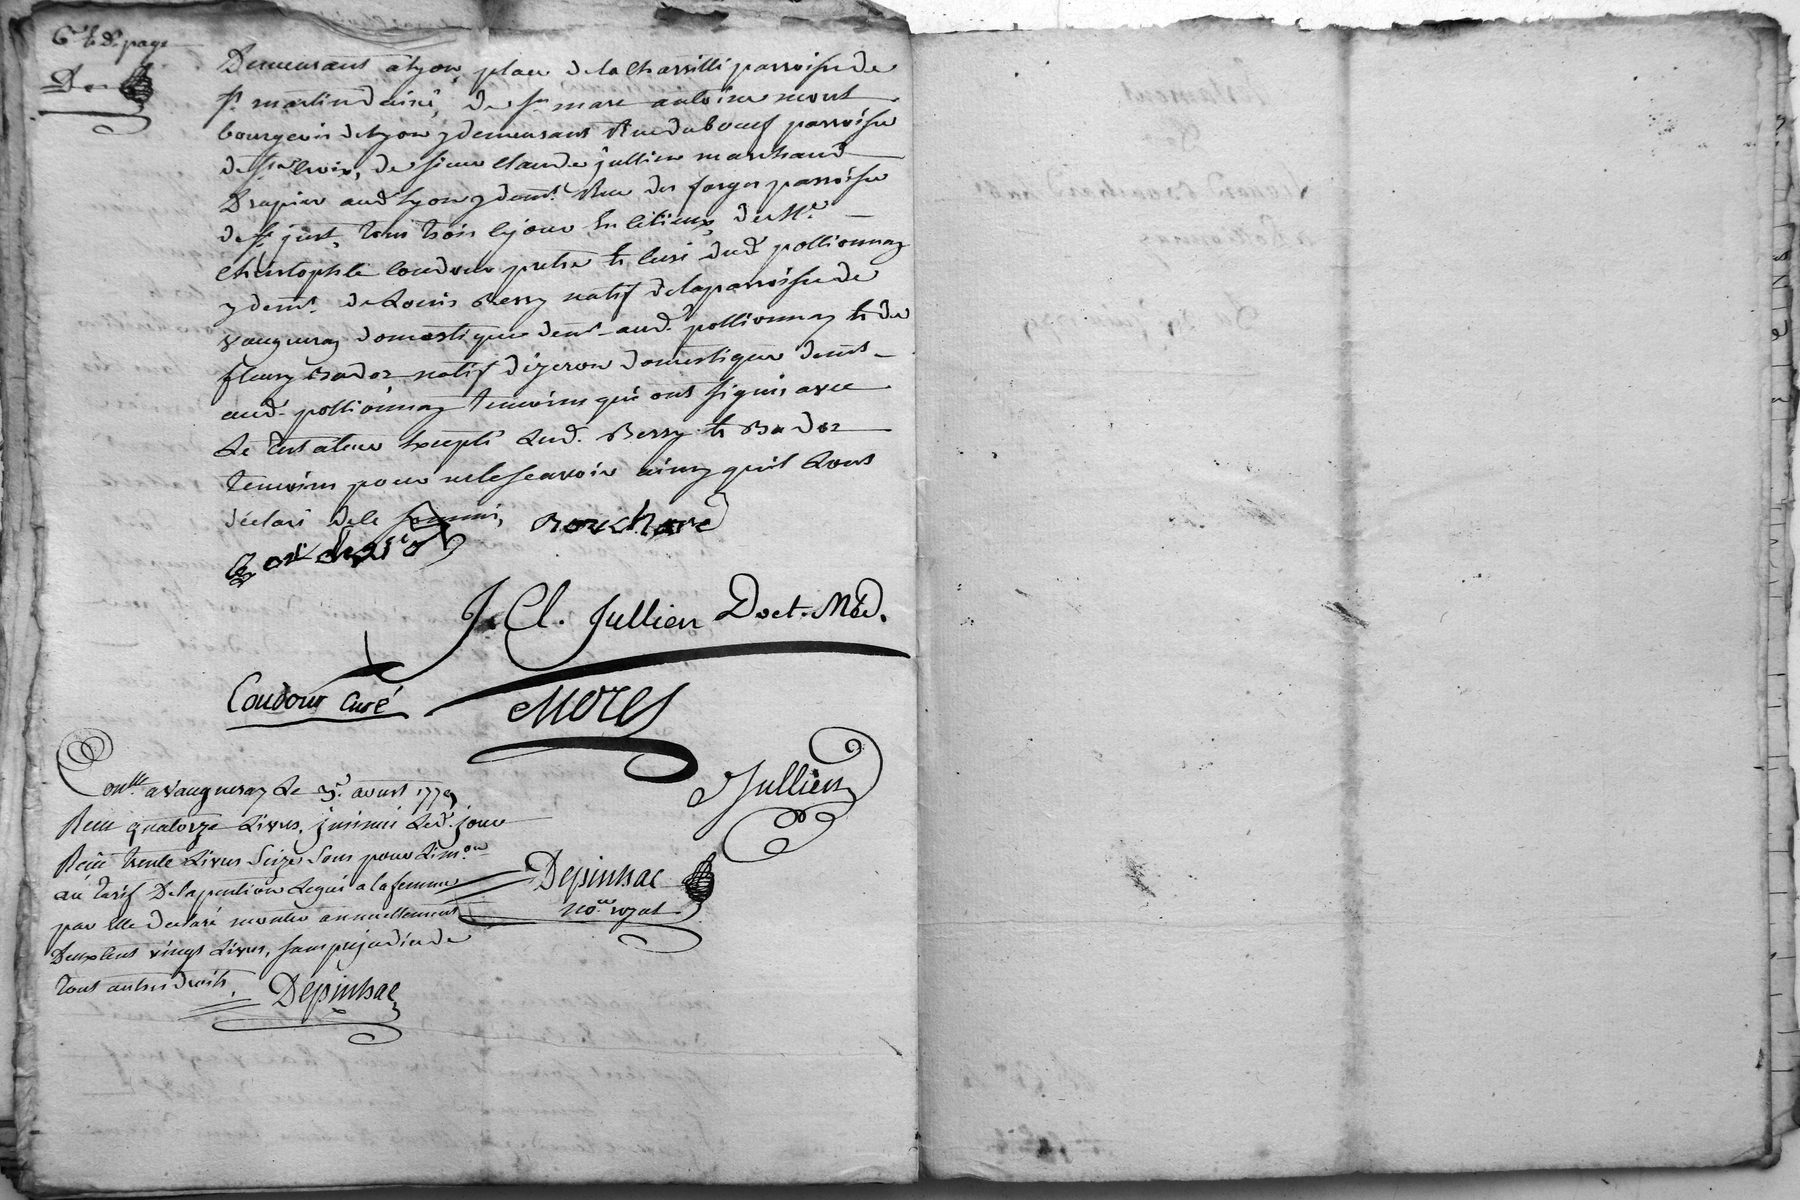 6e et De page
De
Demeurant a lyon, place de la Charitté parroisse de
st. martin dainé, de sr. marc antoine mort
bourgeois de lyon y demeurant Rue du boeuf parroisse
de ste Croix, de sieur Claude jullien marchand
Drapier aud lyon y demt. Rue des farges parroisse
de st just, tous trois ce jour en ce lieux, de Mre.
Christophle Coudour pretre et Curé dud. pollionnay
y demt. de Louis Bessy natif de la parroisse de
vaugneray domestique demt. aud. pollionnay et de
fleury Bador natif dizeron domestique demt.
aud. pollionnay temoins qui ont signés avec
Le testateur Excepté Lesd. Bessy et Bador
temoins pour ne le scavoir ainsy qu'il L'ont
déclaré de ce sommés,
Bouchard
J. Cl. Jullien Doct. Méd.
Coudour Curé
Jullien
onlle. a vaugneray Le aoust 1779
Recu quatorze Livres, jnsinué Led. jour
Reçu trente Livres Seize Sous pour L'inson
au tarif De la pention Leguée a la femme
par elle declaré monter annuellement
Deux Cent vingt Livres, sans prejudice de
tous autres droits,
Depinhac
nore. royal
Depinhac
Testament
De